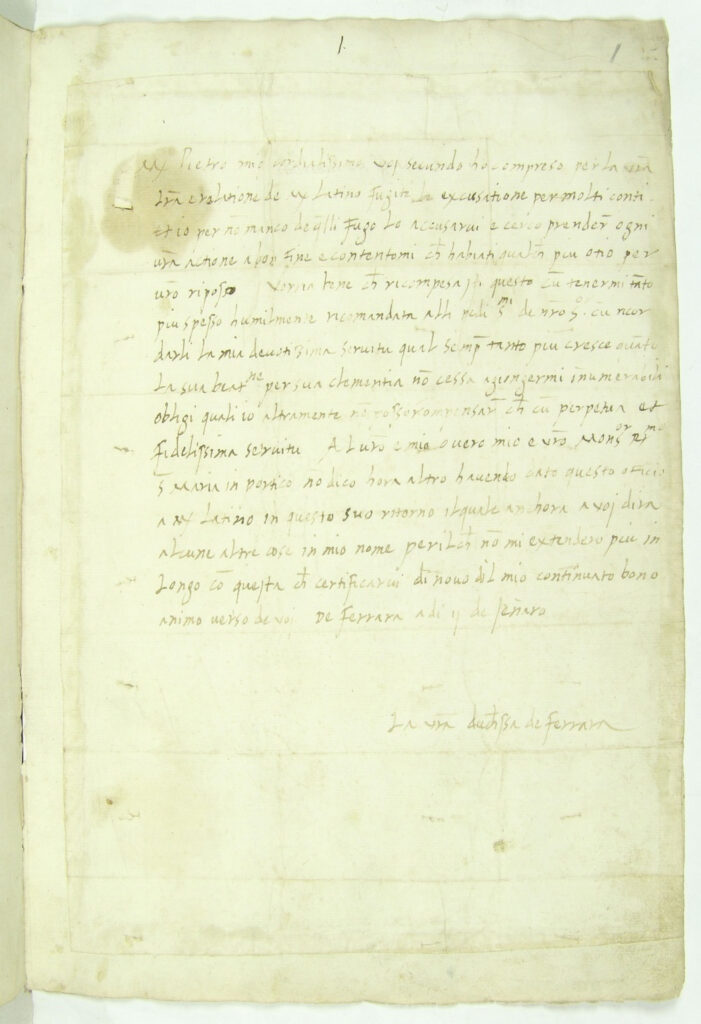 1.
1
Mx Pietro mio cordialissimo voi secundo ho compreso per la vr̃a
lrã e relatione de Mx Latino fugite le excusatione per molti conti
et io per nõ manco de qlli fugo lo accusarvi e cerco prender̃ ogni
vrã actione a bon fine e contentomi ch̃ habiati qualch̃ piu otio per
vrõ riposo Vorria bene ch̃ ricompesasti questo cũ tenermi tãto
piu spesso humilmente ricomandata alli pedi Smi de nrõ S. cũ ricor
darli la mia devotissima servitu qual semp̃ tanto piu cresce quãto
la sua beatne per sua clementia nõ cessa agiongermi inumerabili
obligi quali io altramente nõ posso compensar̃ ch̃ cũ perpetua et
fidelissima servitu Al vrõ e mio overo mio e vrõ Monsor Rmo
S Maria in portico nõ dico hora altro havendo dato questo officio
a Mx Latino in questo suo ritorno il quale anchora a voj dira
alcune altre cose in mio nome per il ch̃ nõ mi extendero piu in
longo cõ questa ch̃ certificarvi di novo dil mio continuato bono
animo verso de voj De Ferrara a di ij de Jenaro
La vrã duchissa de Ferrara